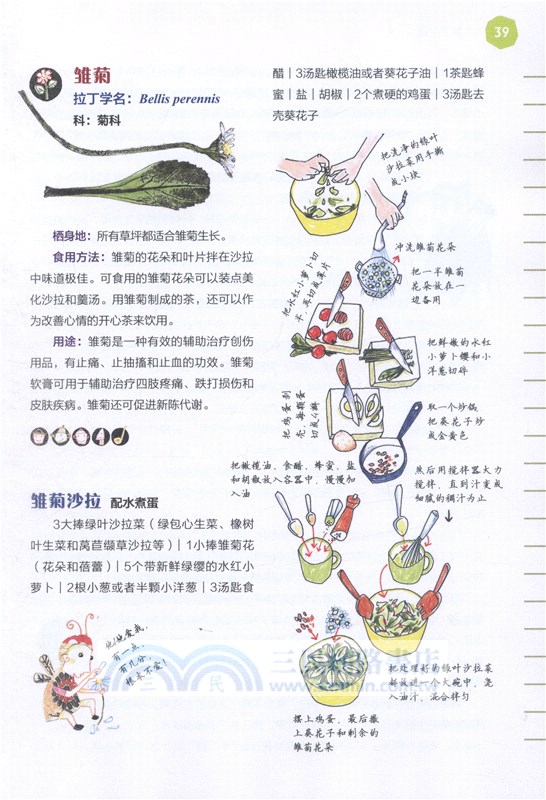 39
雏菊
拉丁学名：Bellis perennis
科：菊科
栖身地：所有草坪都适合雏菊生长。
食用方法：雏菊的花朵和叶片拌在沙拉
中味道极佳。可食用的雏菊花朵可以装点美
化沙拉和羹汤。用雏菊制成的茶，还可以作
为改善心情的开心茶来饮用。
用途：雏菊是一种有效的辅助治疗创伤
用品，有止痛、止抽搐和止血的功效。雏菊
软膏可用于辅助治疗四肢疼痛、跌打损伤和
皮肤疾病。雏菊还可促进新陈代谢。
雏菊沙拉 配水煮蛋
3大捧绿叶沙拉菜（绿包心生菜、橡树
叶生菜和莴苣缬草沙拉等）｜1小捧雏菊花
（花朵和蓓蕾）｜5个带新鲜绿缨的水红小
萝卜｜2根小葱或者半颗小洋葱｜3汤匙食
醋｜3汤匙橄榄油或者葵花子油｜1茶匙蜂
蜜｜盐｜胡椒｜2个煮硬的鸡蛋｜3汤匙去
壳葵花子
把洗净的绿叶
沙拉菜用手撕
成小块
冲洗雏菊花朵
把一半雏菊
花朵放在一
边备用
把水红小萝卜切
开，再切成薄片
把鲜嫩的水红
小萝卜缨和小
洋葱切碎
把鸡蛋剥
壳，每颗蛋
切成4瓣
取一个炒锅，
把葵花子炒
成金黄色
把橄榄油、食醋、蜂蜜、盐
和胡椒放入容器中，慢慢加
入油
然后用搅拌器大力
搅拌，直到汁变成
细腻的稠汁为止
把处理好的绿叶沙拉菜
都放进一个大碗中，浇
入油汁，混合拌匀
摆上鸡蛋，最后撒
上葵花子和剩余的
雏菊花朵
他/她爱我，
有一点，
有几分，
根本不爱！
三民網路書店